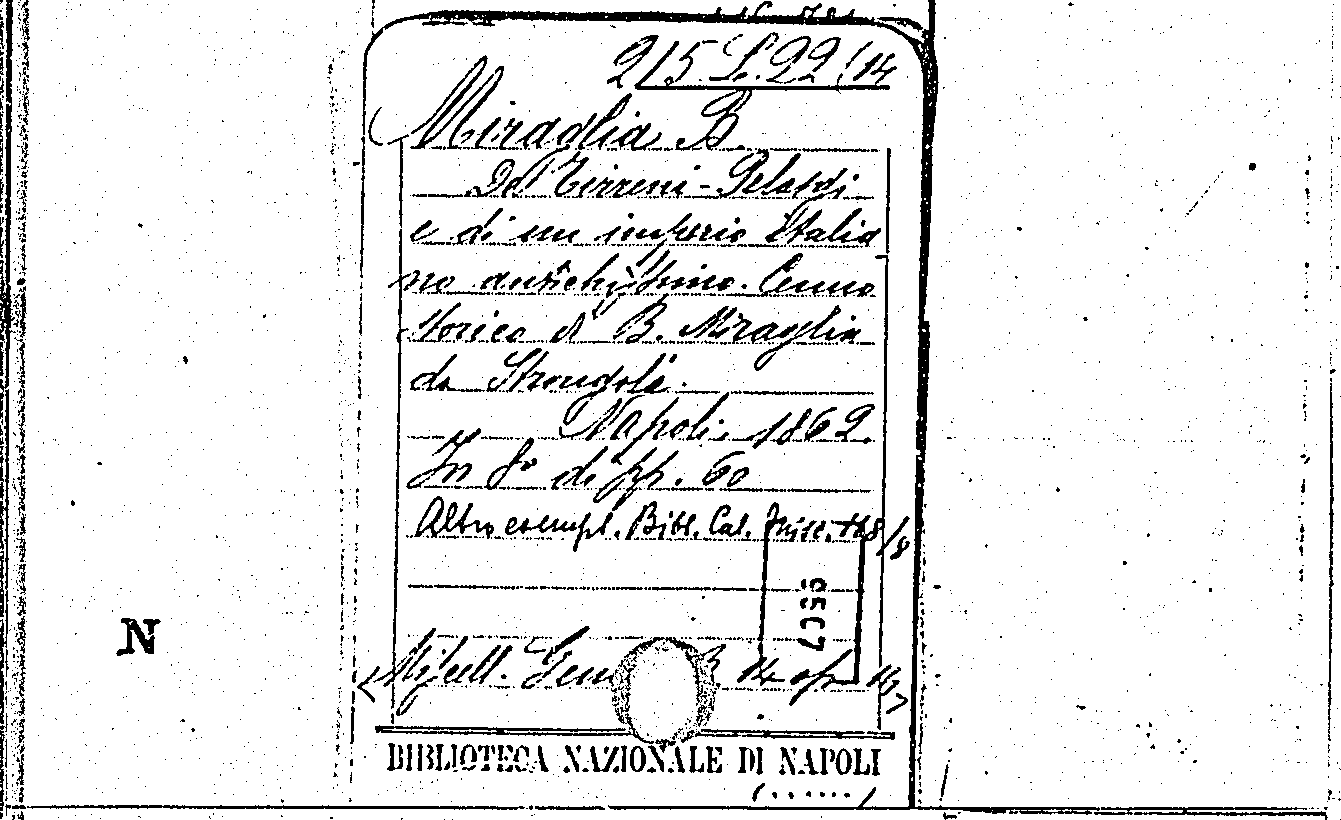 215 L. 22 (14
Miraglia B.
De' Tirreni-Pelasgi
e di un imperio Italia
no antichissimo. Cenno
storico di B. Miraglia
da Strongoli.
Napoli. 1862.
In 8° di pp. 60
Altro esempl. Bibl. Cal. Misc. H8/8
9507
N
Miscell. Gen B. 14 op
BIBLIOTECA NAZIONALE DI NAPOLI